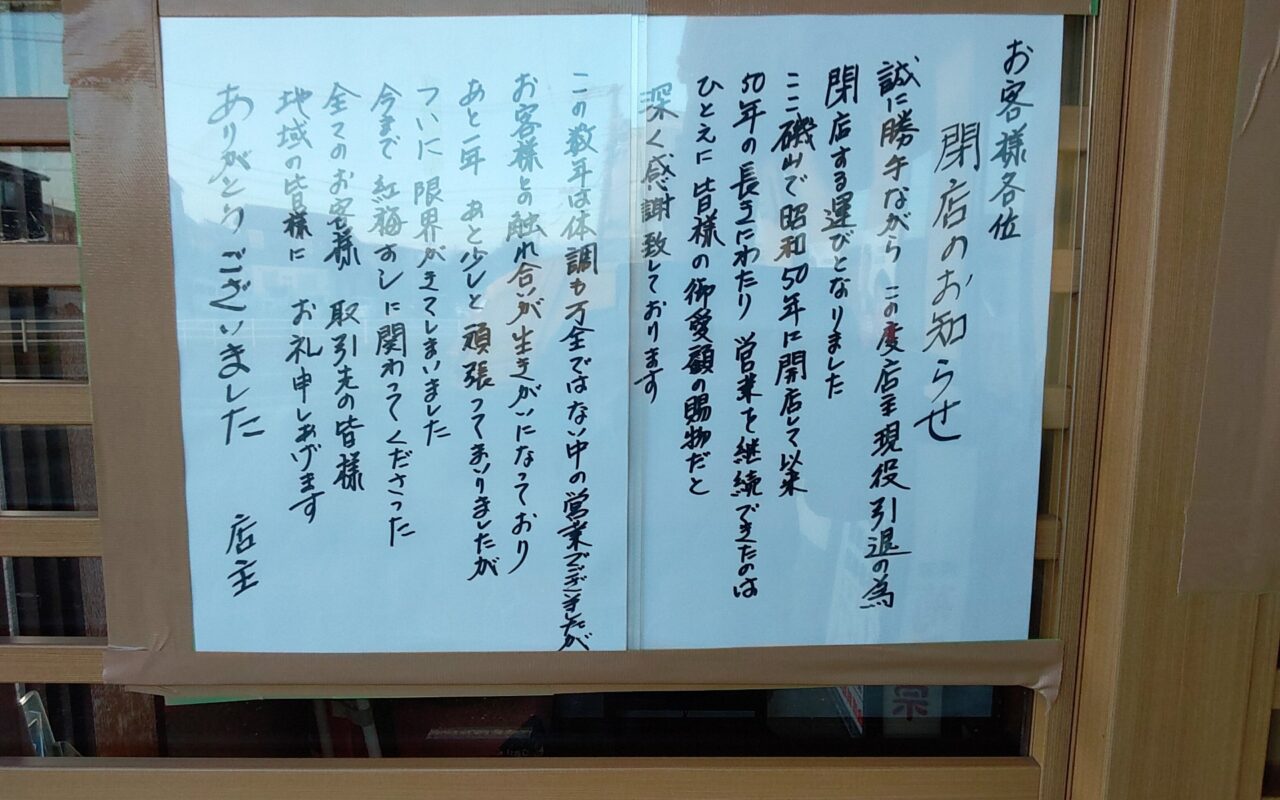 お客様各位
閉店のお知らせ
誠に勝手ながら この度店主現役引退の為
閉店する運びとなりました
ここ磯山で昭和50年に開店して以来
50年の長きにわたり 営業を継続できたのは
ひとえに皆様の御愛顧の賜物だと
深く感謝致しております
この数年は体調も万全ではない中の営業でございましたが
お客様との触れ合いが生きがいになっており
あと一年 あと少しと頑張ってまいりましたが
ついに限界がきてしまいました
今まで紅梅すしに関わってくださった
全てのお客様 取引先の皆様
地域の皆様に お礼申しあげます
ありがとうございました 店主
宗